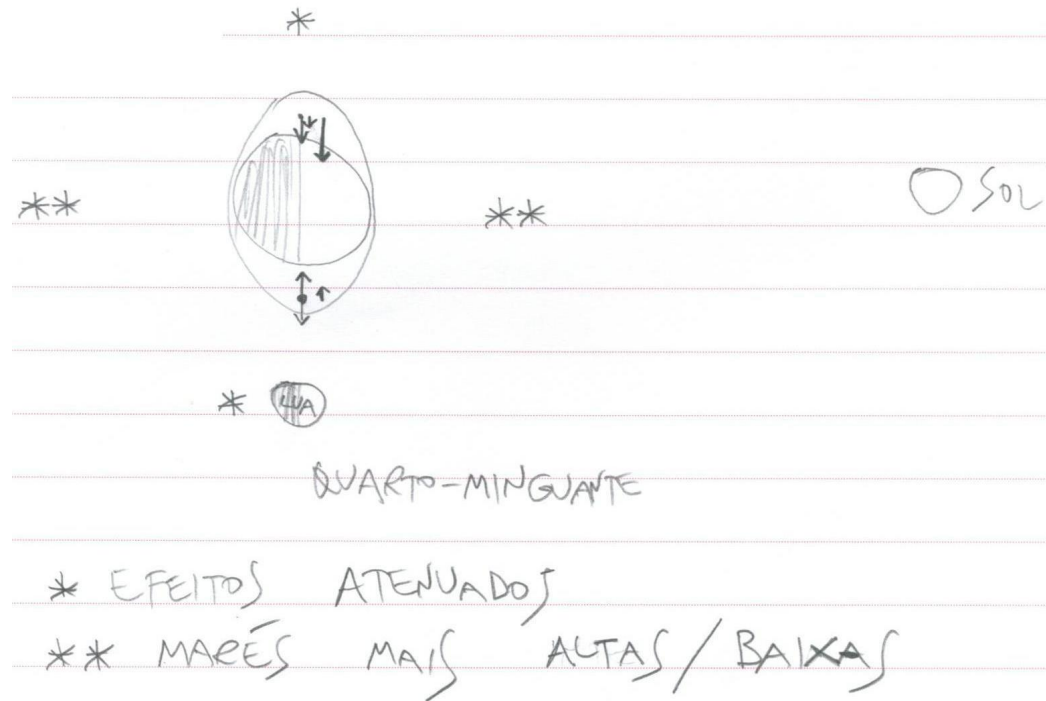 *
** ** SOL
* LUA
QUARTO-MINGUANTE
* EFEITOS ATENUADOS
** MARÉS MAIS ALTAS/BAIXAS